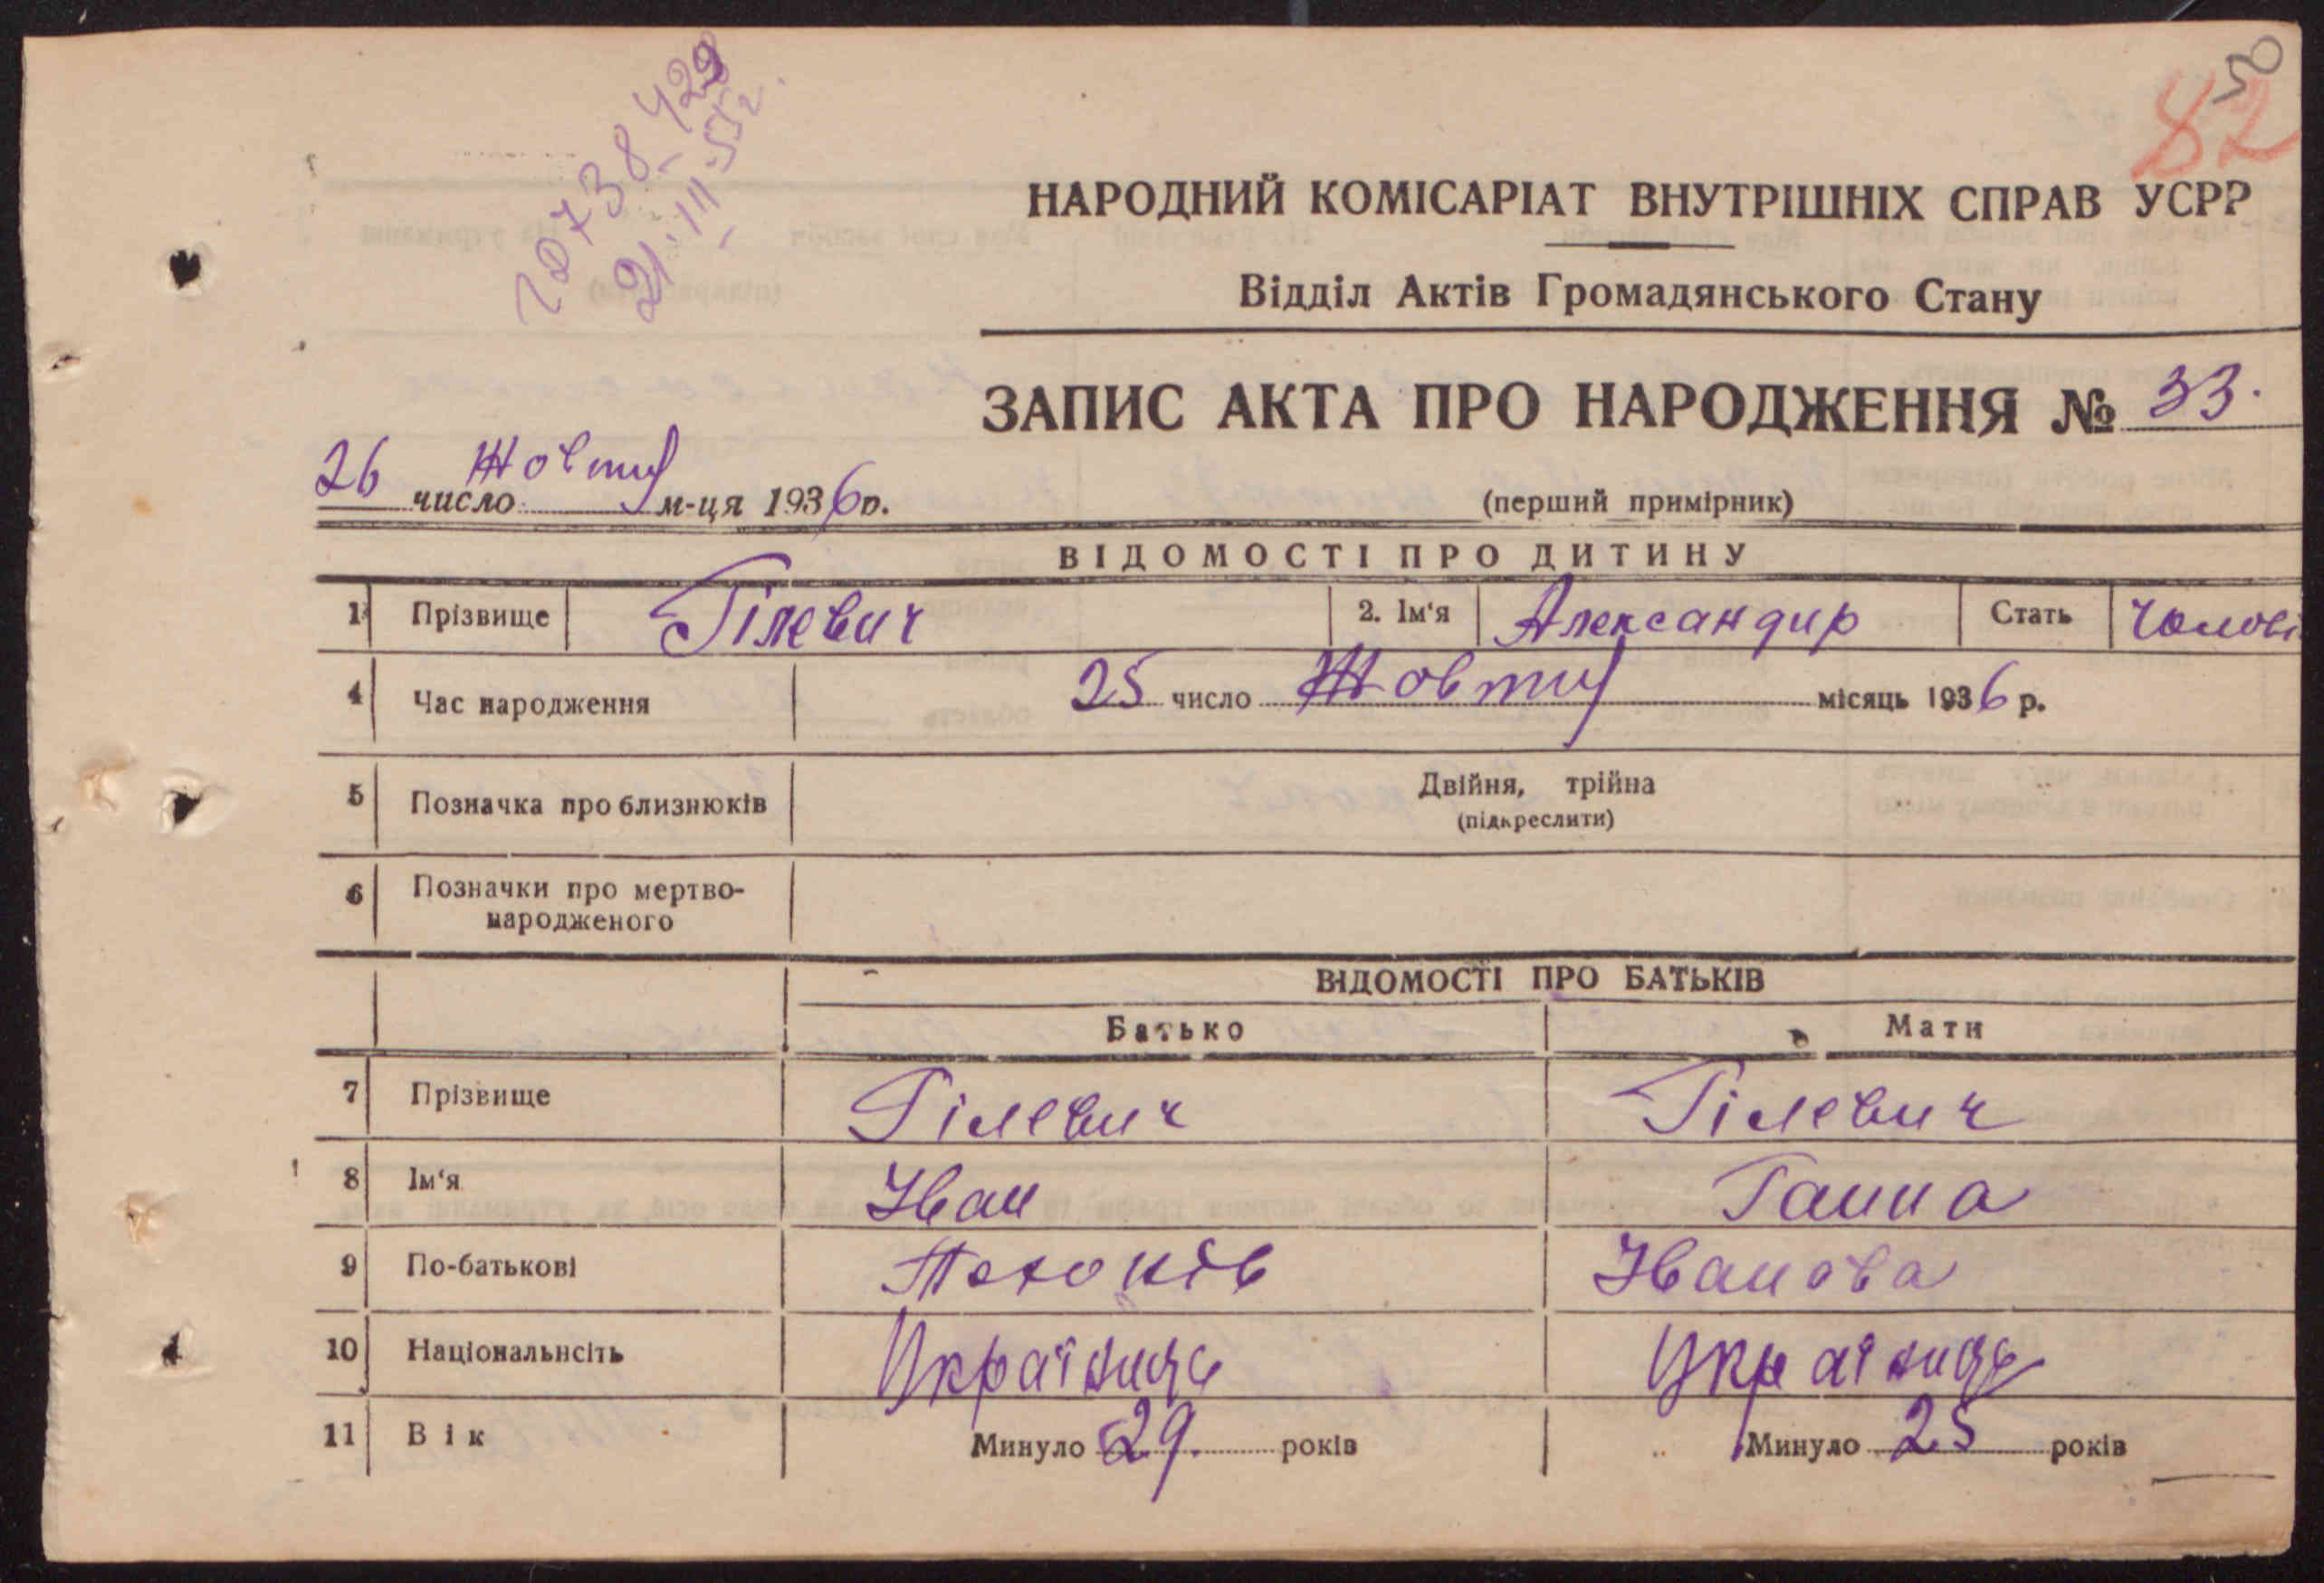 50
82
21.III.55г.
НАРОДНИЙ КОМІСАРІАТ ВНУТРІШНІХ СПРАВ УСРР
Відділ Актів Громадянського Стану
ЗАПИС АКТА ПРО НАРОДЖЕННЯ № 33.
26 число Жовтня м-ця 1936 р.
(перший примірник)
ВІДОМОСТІ ПРО ДИТИНУ
1 Прізвище Гілевич 2. Ім'я Александир Стать Чолові
4 Час народження 25 число Жовтня місяць 1936 р.
5 Позначка про близнюків Двійня, трійна
(підкреслити)
6 Позначки про мертво-
народженого
ВІДОМОСТІ ПРО БАТЬКІВ
Батько Мати
7 Прізвище Гілевич Гілевич
8 Ім'я Іван Ганна
9 По-батькові Іванова
10 Національнсіть Українце Українце
11 Вік Минуло 29. років Минуло 25 років